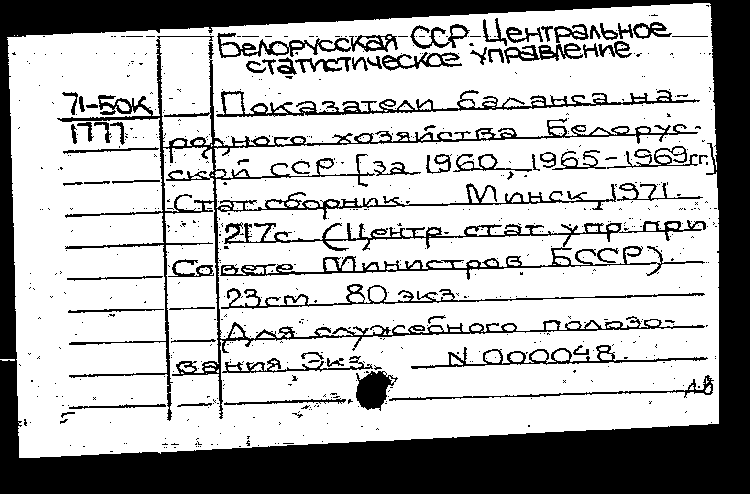 Белорусская ССР. Центральное
статистическое управление.
71-БОК
1777
Показатели баланса на-
родного хозяйства Белорус-
ской ССР [за 1960, 1965-1969гг.]
Стат. сборник. Минск, 1971.
217с. (Центр. стат. упр. при
Совете Министров БССР).
23см. 80 экз.
Для служебного пользо-
вания. Экз. N 000048.